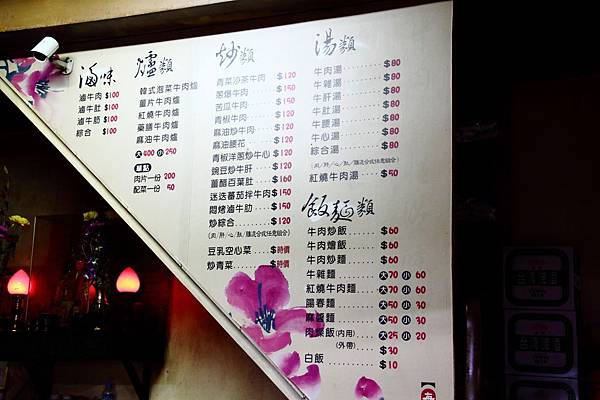 滷味
滷牛肉 $100
滷牛肚 $100
滷牛筋 $100
綜合 $100
爐類
韓式泡菜牛肉爐
薑片牛肉爐
紅燒牛肉爐
藥膳牛肉爐
麻油牛肉爐
大400 小250
單點
肉片一份 200
配菜一份 50
炒類
青菜沙茶牛肉 $120
蔥爆牛肉 $150
苦瓜牛肉 $150
青椒牛肉 $120
麻油炒牛肉 $120
麻油腰花 $120
青椒洋蔥炒牛心 $120
豌豆炒牛肝 $120
薑醋百葉肚 $160
迷迭番茄拌牛肉 $150
悶烤滷牛肋 $150
炒綜合 $120
(肉/肝/心/肚/腰混合或任意組合)
豆乳空心菜 $時價
炒青菜 $時價
湯類
牛肉湯 $80
牛雜湯 $80
牛肝湯 $80
牛肚湯 $80
牛腰湯 $80
牛心湯 $80
綜合湯 $80
(肉/肝/心/肚/腰混合或任意組合)
紅燒牛肉湯 $50
飯麵類
牛肉炒飯 $60
牛肉燴飯 $60
牛肉炒麵 $60
牛雜麵 大70 小60
紅燒牛肉麵 大70 小60
陽春麵 大50 小30
麻醬麵 大50 小30
肉燥飯(內用) 大25 小20
(外帶) $30
白飯 $10